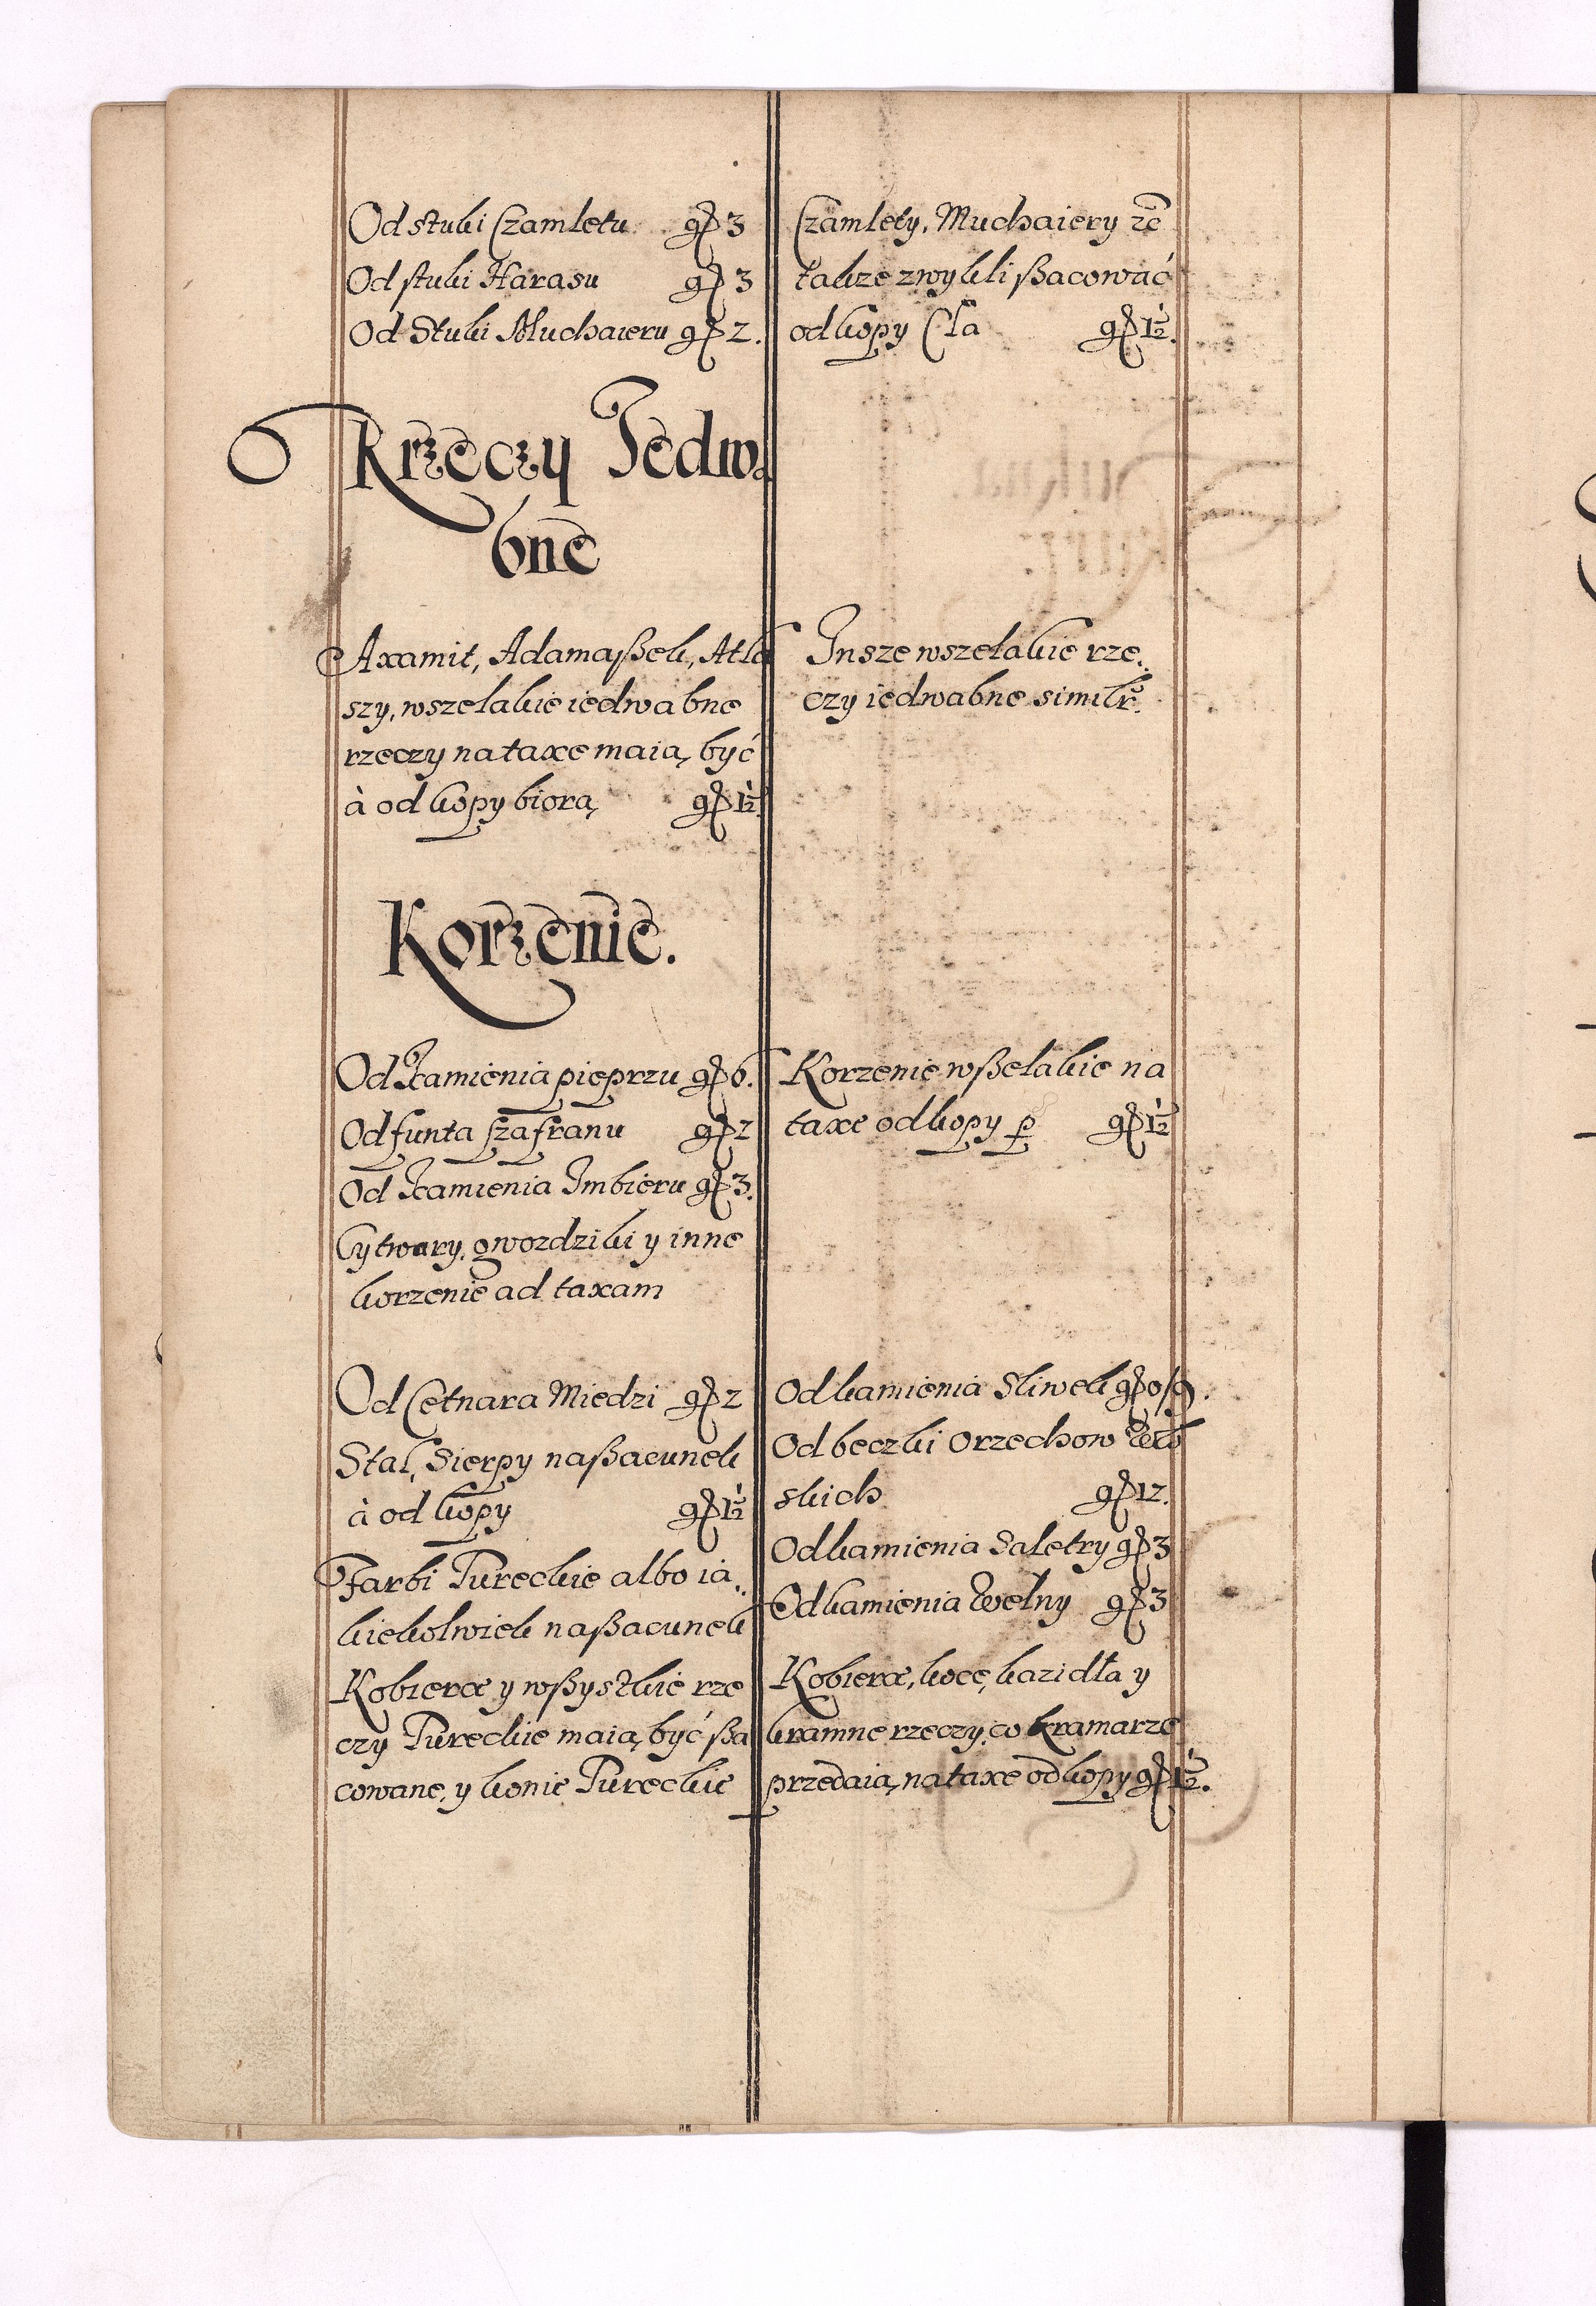 Od stuki Czamletu gр 3
Od stuki Harasu gр 3
Od Stuki Muchaieru gр 2.
Rzeczy Jedwa
bne
Axamit, Adamaßek, Atła
szy, wszelakie iedwabne
rzeczy na taxe maią być
à od kopy biorą gр 1½.
Korzenie.
Od Kamienia pieprzu gр 6.
Od funta szafranu gр 2
Od Kamienia Imbieru gр 3.
Cytwary, gwozdziki y inne
korzenie ad taxam
Od Cetnara Miedzi gр 2
Stal, Sierpy na ßacunek
à od kopy gр 1½
Farbi Tureckie albo ia
kiekolwiek na ßacunek
Kobierce y wßystkie rze
czy Tureckie maią być ßa
cowane, y konie Tureckie
Czamlety, Muchaiery etc
także zwykli ßacować
od kopy Cła gр 1½.
Insze wszelakie rze
czy iedwabne similr.
Korzenie wßelakie na
taxe od kopy p gр 1½
Od kamienia Sliwek gр
Od beczki Orzechow Wło
skich gр 12.
Od kamienia Saletry gр 3
Od kamienia Wełny gр 3
Kobierce, koce, kazidła y
kramne rzeczy, co kramarze
przedaią, na taxe od kopy gр 1½.